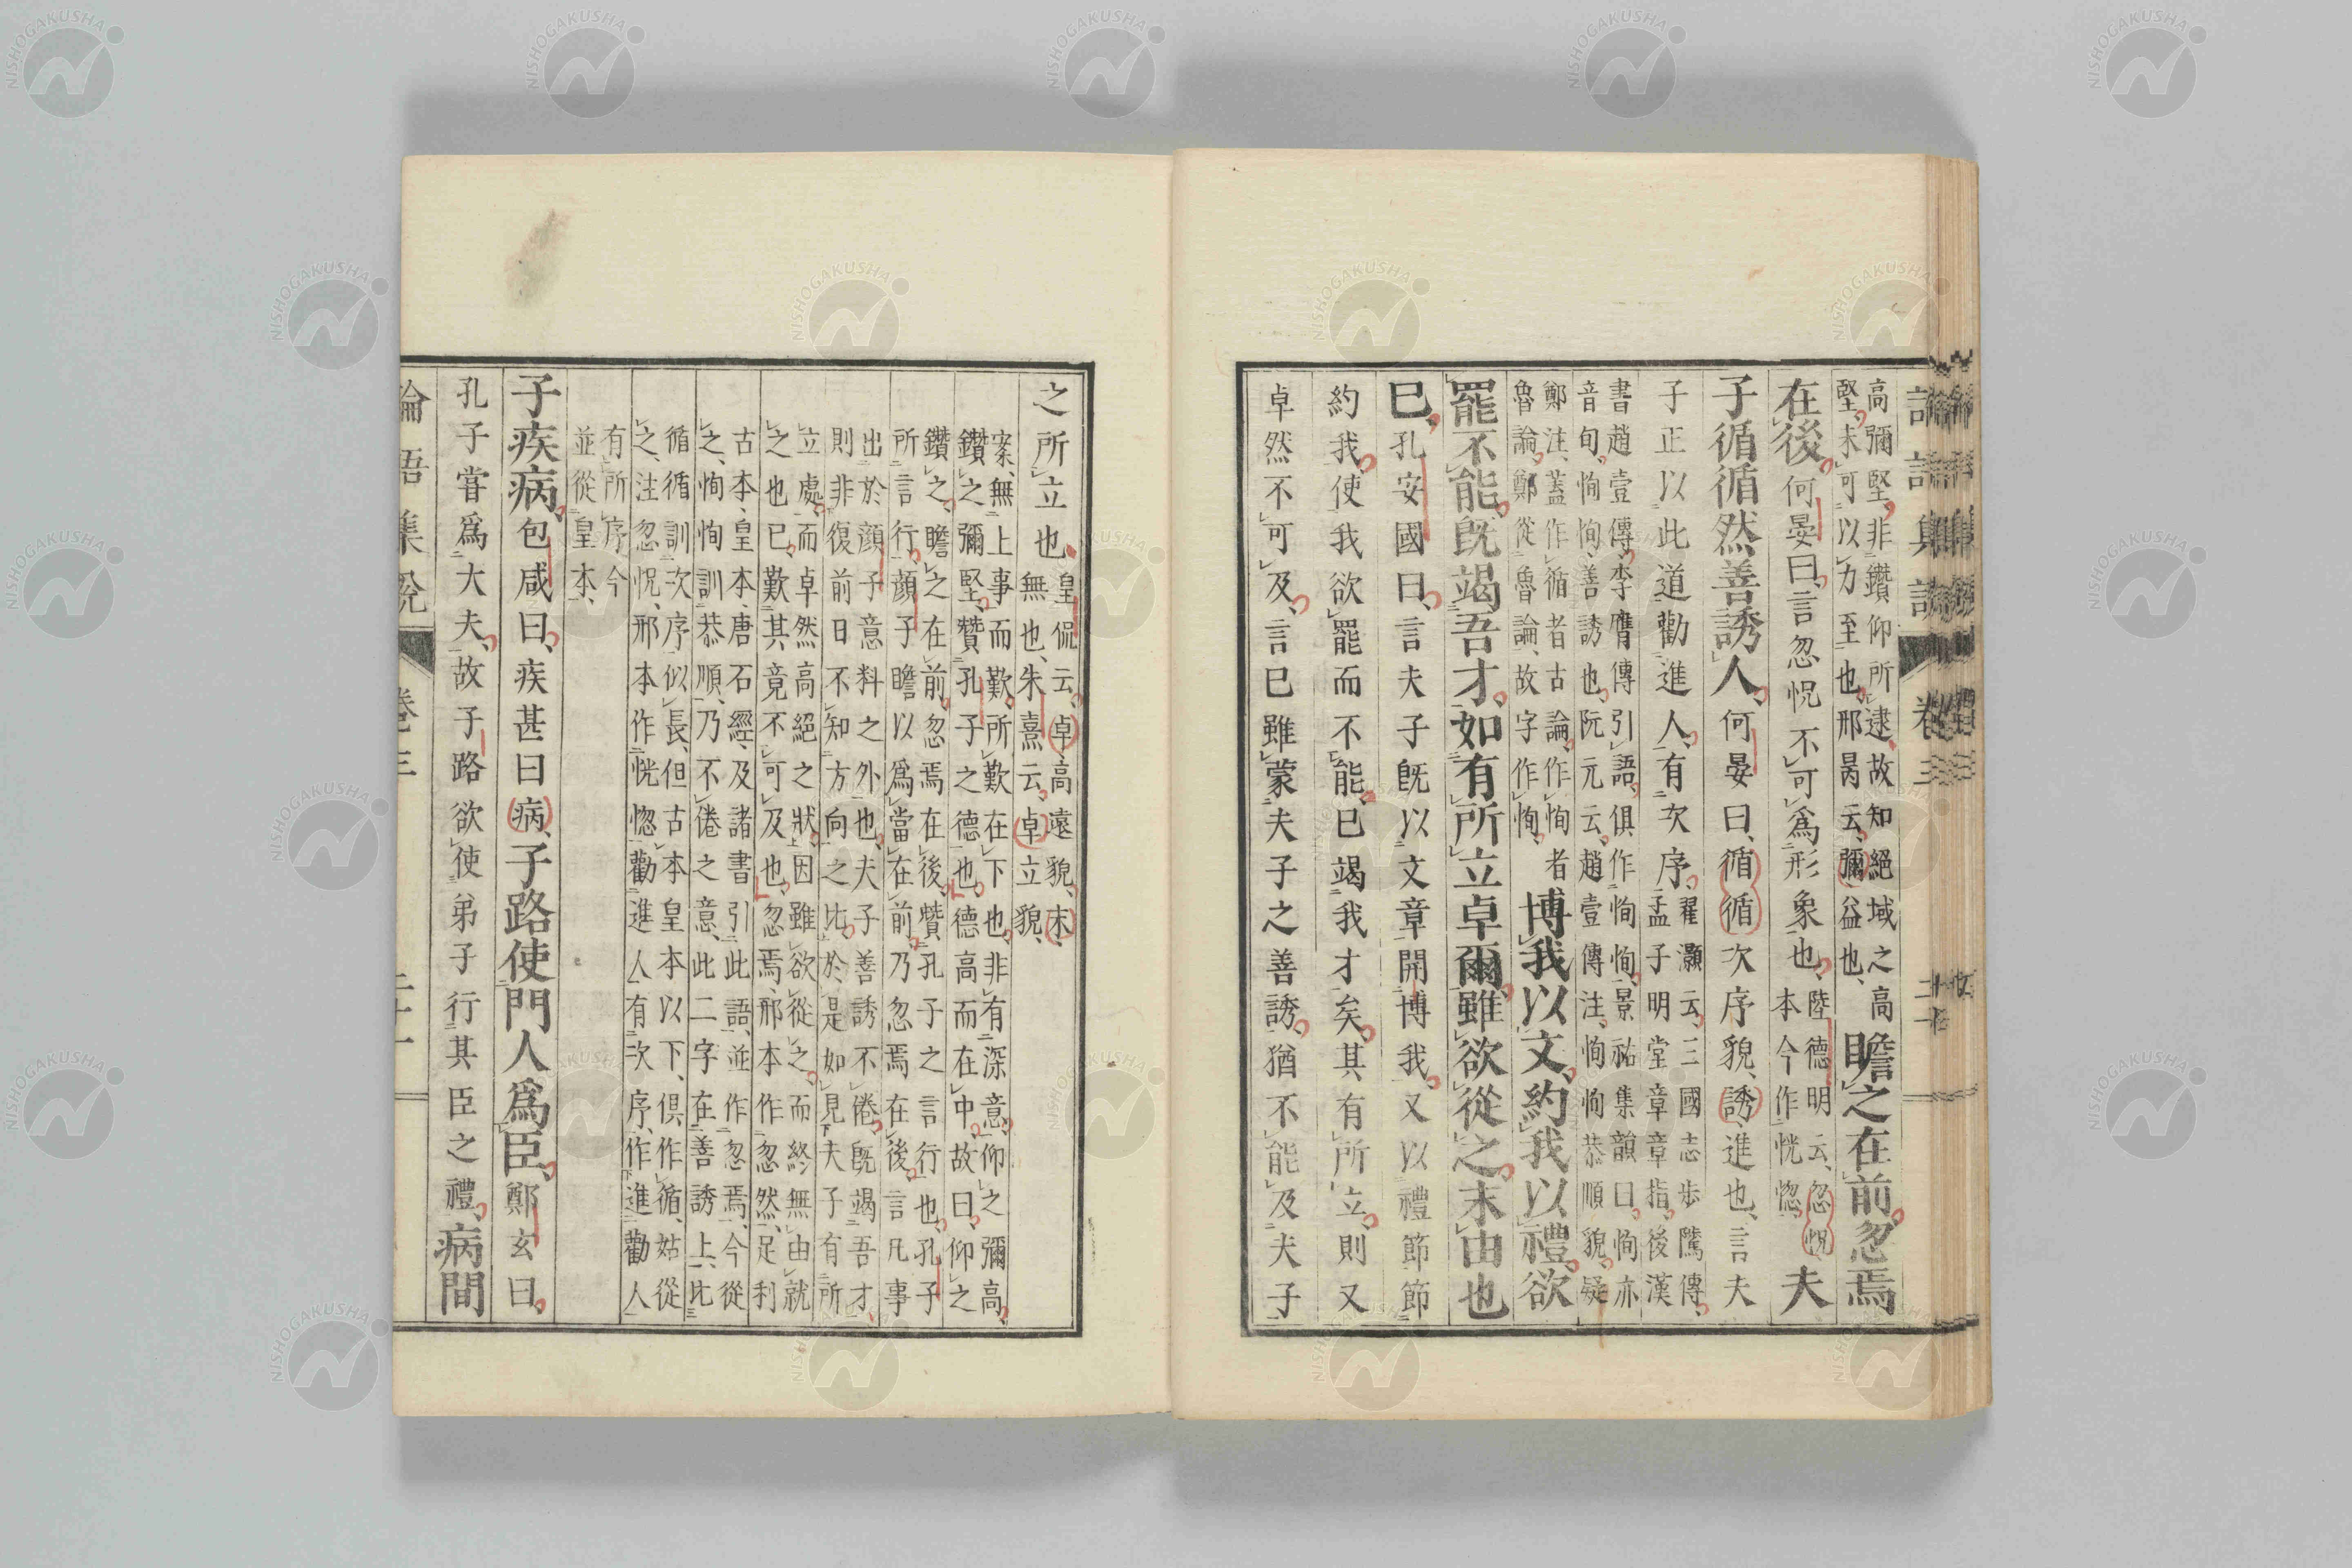 高彌堅、非鑽仰所逮、故知絕域之高
堅、末可以力至也、邢昺云、彌益也、
瞻之在前、忽焉
在後、何晏曰、言忽怳不可爲形象也、
陸德明云、忽怳
本今作恍惚、
夫
子循循然善誘人、何晏曰、循循次序貌、誘、進也、言夫
子正以此道勸進人、有次序、
翟灝云、三國志步騭傳、
孟子明堂章章指、後漢
書趙壹傳、李膺傳引語、俱作恂恂、景祐集韻曰、恂亦
音旬、恂恂、善誘也、阮元云、趙壹傳注、恂恂恭順貌、疑
鄭注、蓋作循者古論、作恂者
魯論、鄭從魯論、故字作恂、
博我以文、約我以禮、欲
罷不能、旣竭吾才、如有所立卓爾、雖欲從之、末由也
已、孔安國曰、言夫子旣以文章開博我、又以禮節節
約我、使我欲罷而不能、已竭我才矣、其有所立、則又
卓然不可及、言已雖蒙夫子之善誘、猶不能及夫子
之所立也、
皇侃云、卓、高遠貌、末、
無也、朱熹云、卓立貌、
案、無上事而歎、所歎在下也、非有深意、仰之彌高、
鑽之彌堅、贊孔子之德也、德高而在中、故曰、仰之
鑽之、瞻之在前、忽焉在後、贊孔子之言行也、孔子
所言行、顏子瞻以爲當在前、乃忽焉在後、言凡事
出於顏子意料之外也、夫子善誘不倦、旣竭吾才、
則非復前日不知方向之比、於是如見夫子有所
立處、而卓然高絕之狀、因雖欲從之、而終無由就
之也已、歎其竟不可及也、忽焉、邢本作忽然、足利
古本、皇本、唐石經、及諸書引此語、並作忽焉、今從
之、恂恂訓恭順、乃不倦之意、此二字在善誘上、比
循循訓次序似長、但古本皇本以下、俱作循、姑從
之、注忽怳、邢本作恍惚、勸進人有次序、作進勸人
有所序、今
並從皇本、
子疾病、包咸曰、疾甚曰病、子路使門人爲臣、鄭玄曰、
孔子嘗爲大夫、故子路欲使弟子行其臣之禮、病間
NISHOGAKUSHA